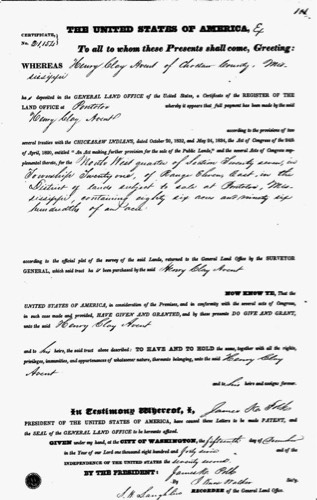 THE UNITED STATES OF AMERICA,
CERTIFICATE
No.
To all to whom these Presents shall come, Greeting:
WHEREAS Henry Clay Avent of Choctaw County, Mis-
sissippi
ha s deposited in the GENERAL LAND OFFICE of the United States, a Certificate of the REGISTER OF THE
LAND OFFICE at Pontotoc whereby it appears that full payment has been made by the said
Henry Clay Avent
according to the provisions of two
several treaties with the CHICKASAW INDIANS, dated October 20, 1832, and May 24, 1834, the Act of Congress of the 24th
of April, 1820, entitled "An Act making further provision for the sale of the Public Lands," and the several Acts of Congress sup-
plemental thereto, for the North West quarter of Section Twenty seven, in
Township Twenty one, of Range Eleven East, in the
District of lands subject to sale at Pontotoc, Mis-
sissippi, containing eighty six acres and ninety six
hundredths of an acre
according to the official plat of the survey of the said Lands, returned to the General Land Office by the SURVEYOR
GENERAL, which said tract ha s been purchased by the said Henry Clay Avent
NOW KNOW YE, That the
UNITED STATES OF AMERICA, in consideration of the Premises, and in conformity with the several acts of Congress,
in such case made and provided, HAVE GIVEN AND GRANTED, and by these presents DO GIVE AND GRANT,
unto the said Henry Clay Avent
and to his heirs, the said tract above described: TO HAVE AND TO HOLD the same, together with all the rights,
privileges, immunities, and appurtenances of whatsoever nature, thereunto belonging, unto the said Henry Clay
Avent
and to his heirs and assigns forever.
In Testimony Whereof, I, James K. Polk
PRESIDENT OF THE UNITED STATES OF AMERICA, have caused these Letters to be made PATENT,
and the SEAL of the GENERAL LAND OFFICE to be hereunto affixed.
GIVEN under my hand, at the CITY OF WASHINGTON, the fifteenth day of December
in the Year of our Lord one thousand eight hundred and forty seven and of the
INDEPENDENCE OF THE UNITED STATES the seventy second
BY THE PRESIDENT: James K. Polk
By J. Knox Walker
S. H. Laughlin RECORDER of the General Land Office.